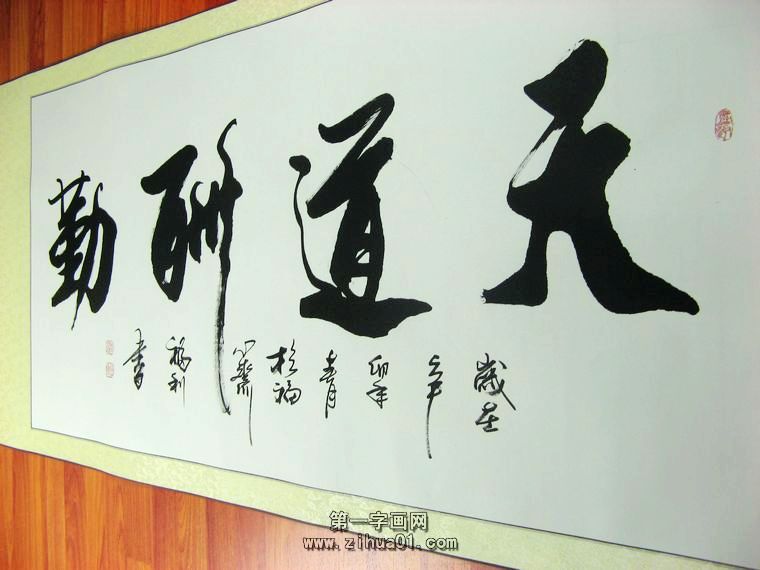 天道酬勤
歲在辛卯年青
福利書
第一字画网
www.zihua01.com